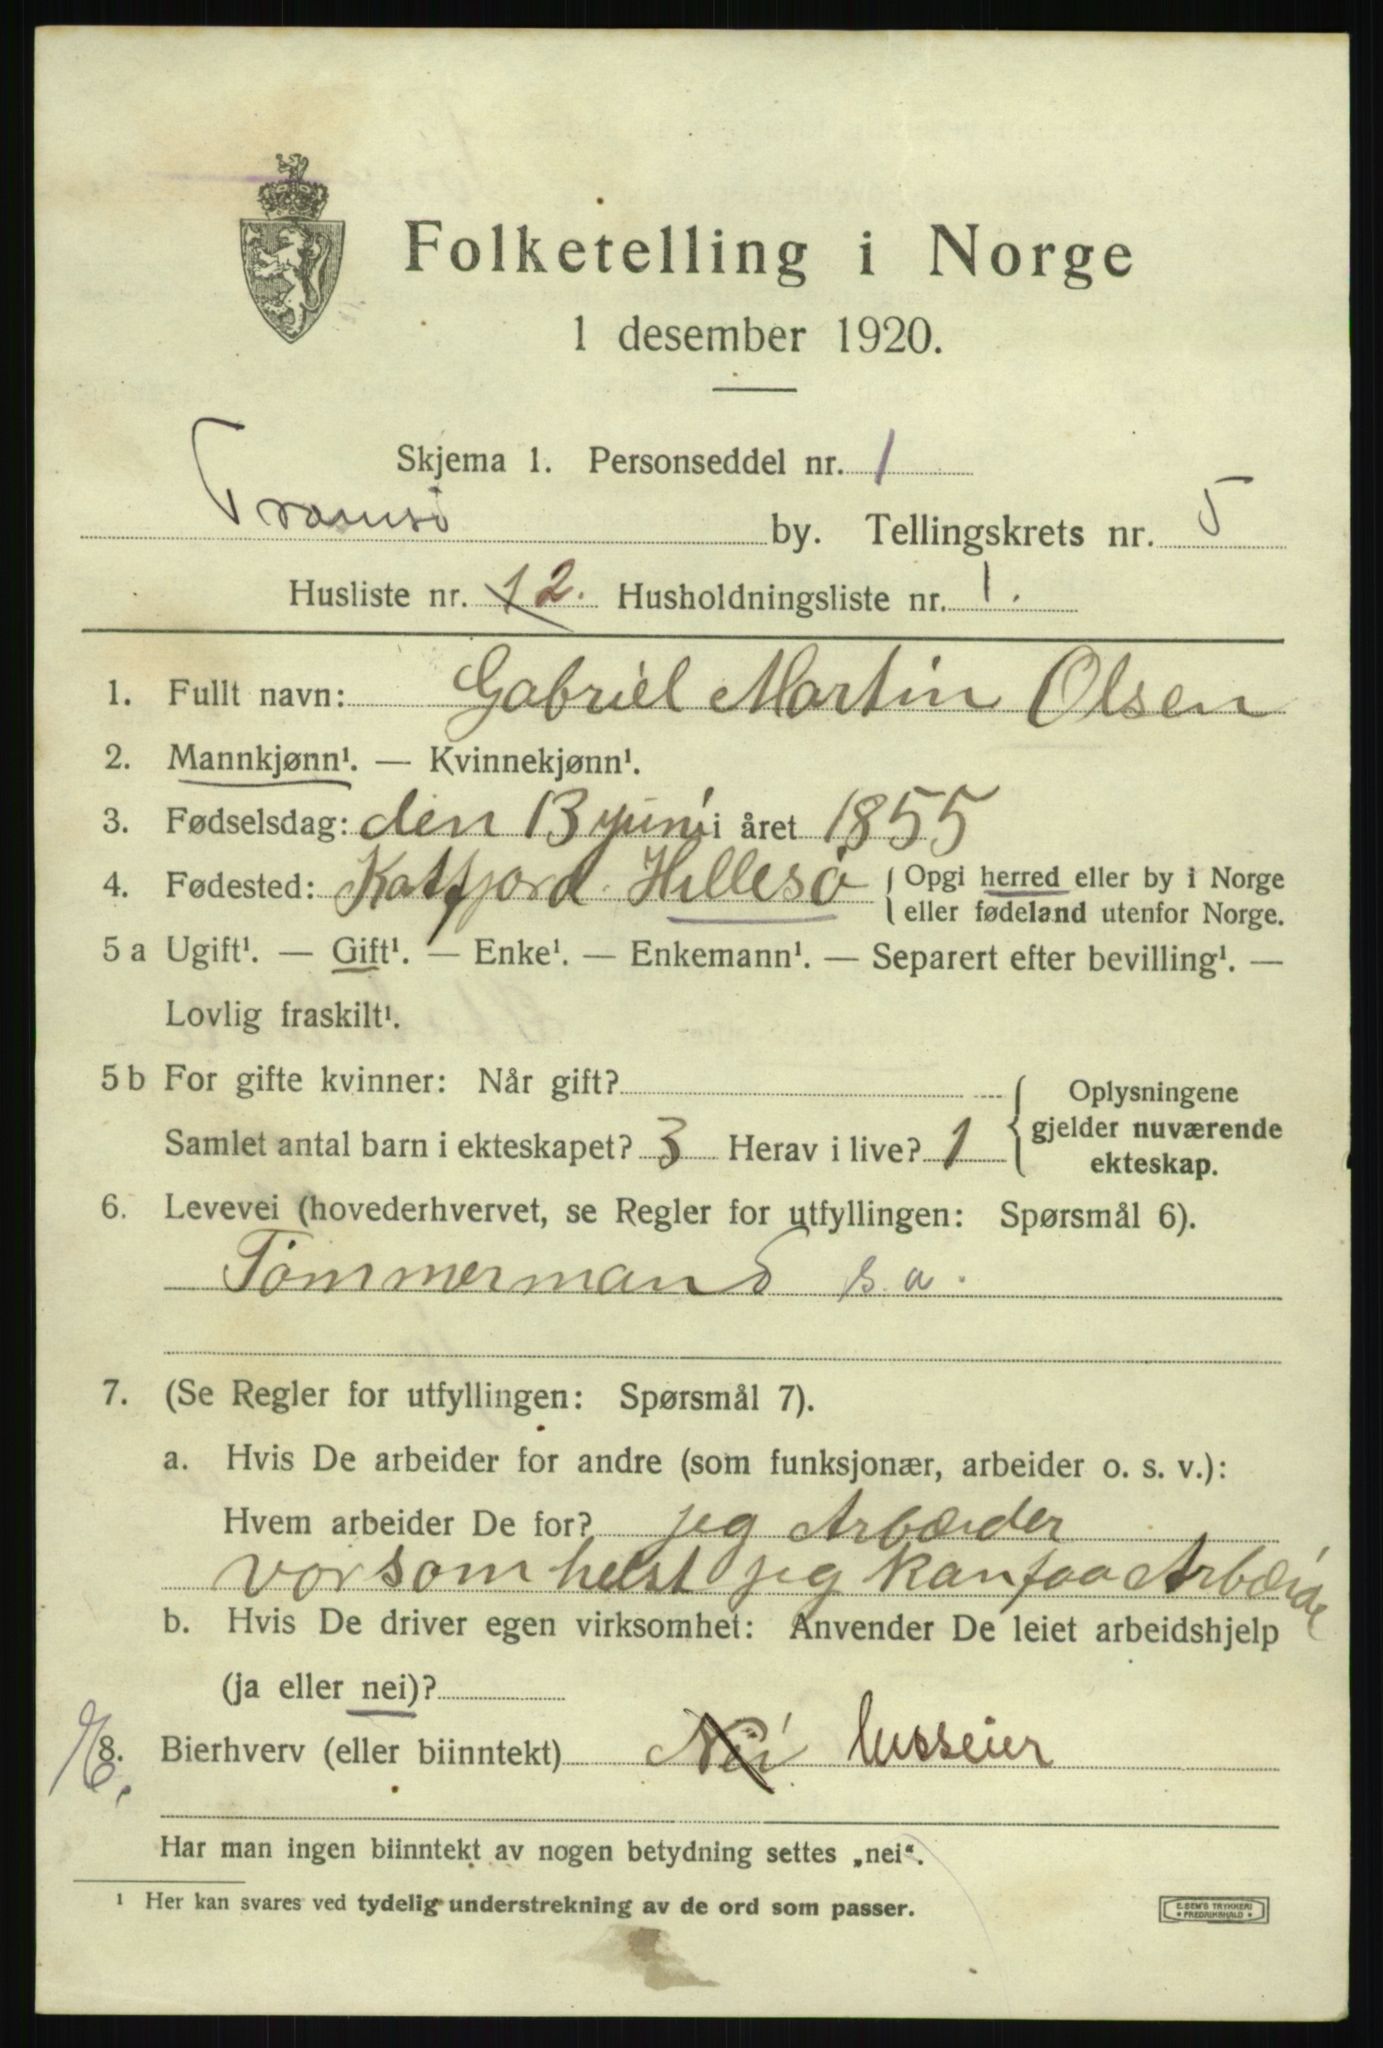 Folketelling i Norge
1 desember 1920.
Skjema 1. Personseddel nr. 1
Tromsö by. Tellingskrets nr. 5
Husliste nr. 12. Husholdningsliste nr. 1.
1. Fullt navn: Gabriel Martin Olsen
2. Mannkjønn¹. — Kvinnekjønn¹.
3. Fødselsdag: den 13 juni i året 1855
4. Fødested: Katfjord Hillesö { Opgi herred eller by i Norge
eller fødeland utenfor Norge.
5 a Ugift¹. — Gift¹. — Enke¹. — Enkemann¹. — Separert efter bevilling¹. —
Lovlig fraskilt¹.
5 b For gifte kvinner: Når gift?
Samlet antal barn i ekteskapet? 3 Herav i live? 1
{ Oplysningene
gjelder nuværende
ekteskap.
6. Levevei (hovederhvervet, se Regler for utfyllingen: Spørsmål 6).
Tömmermand s. a.
7. (Se Regler for utfyllingen: Spørsmål 7).
a. Hvis De arbeider for andre (som funksjonær, arbeider o. s. v.):
Hvem arbeider De for? jeg Arbæider
vor som helst jeg kan faa Arbæide
b. Hvis De driver egen virksomhet: Anvender De leiet arbeidshjelp
(ja eller nei)?
8. Bierhverv (eller biinntekt) Nei husseier
Har man ingen biinntekt av nogen betydning settes „nei“.
¹ Her kan svares ved tydelig understrekning av de ord som passer.
E. SEM'S TRYKKERI
FREDRIKSHALD